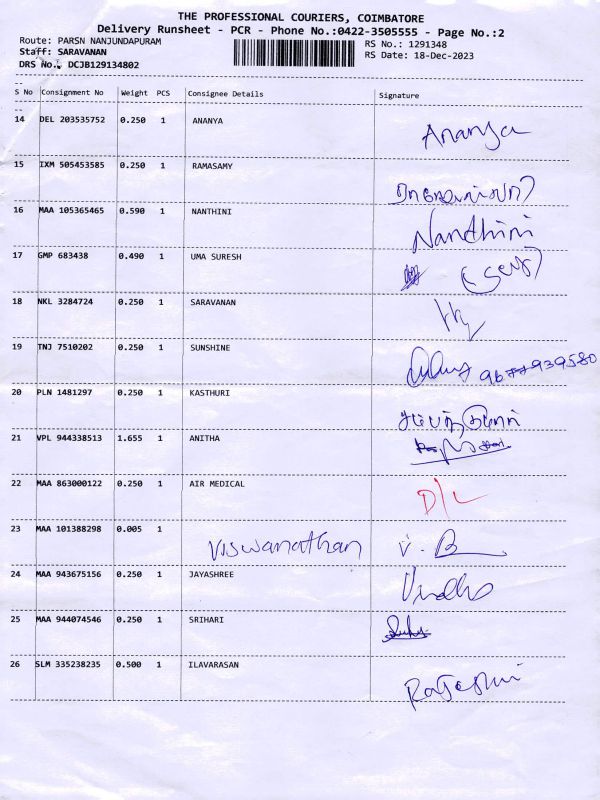 THE PROFESSIONAL COURIERS, COIMBATORE
Delivery Runsheet - PCR - Phone No.:0422-3505555 - Page No.:2
Route: PARSN NANJUNDAPURAM RS No.: 1291348
Staff: SARAVANAN RS Date: 18-Dec-2023
DRS No.: DCJB129134802
S No Consignment No Weight PCS Consignee Details Signature
14 DEL 203535752 0.250 1 ANANYA Ananya
15 IXM 505453585 0.250 1 RAMASAMY
16 MAA 105365465 0.590 1 NANTHINI Nandhini
17 GMP 683438 0.490 1 UMA SURESH
18 NKL 3284724 0.250 1 SARAVANAN
19 TNJ 7510202 0.250 1 SUNSHINE 9677939580
20 PLN 1481297 0.250 1 KASTHURI
21 VPL 944338513 1.655 1 ANITHA
22 MAA 863000122 0.250 1 AIR MEDICAL D/L
23 MAA 101388298 0.005 1 Viswanathan V. B
24 MAA 943675156 0.250 1 JAYASHREE
25 MAA 944074546 0.250 1 SRIHARI
26 SLM 335238235 0.500 1 ILAVARASAN Rajeshwi